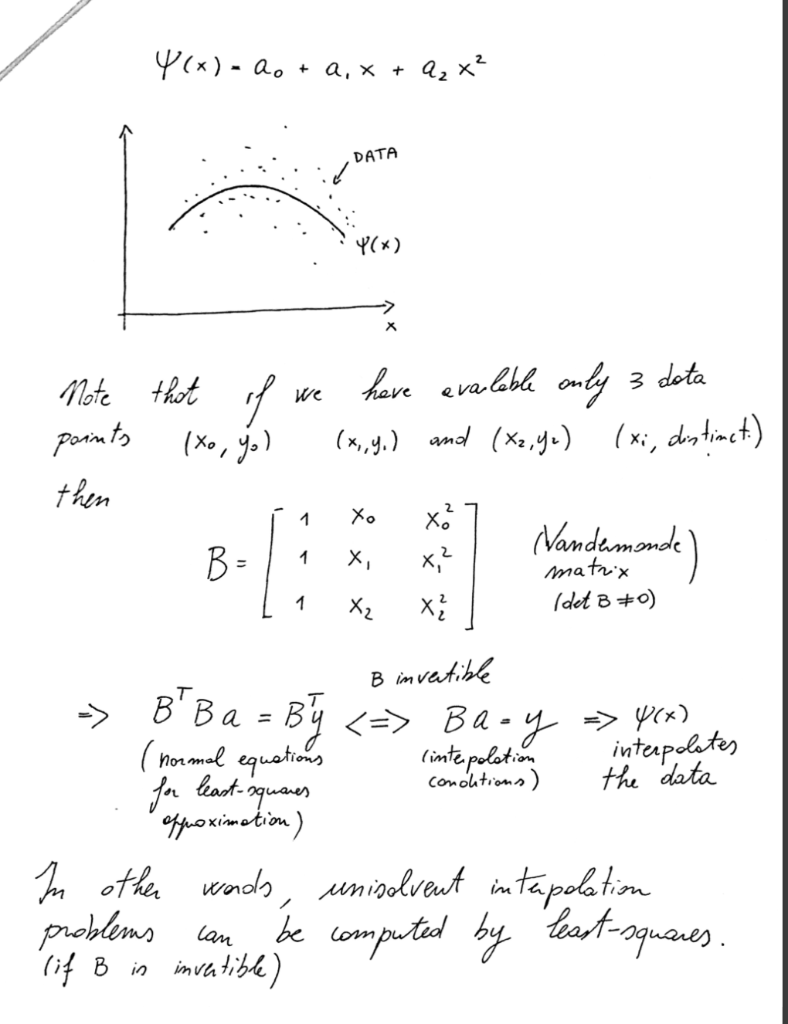 Ψ(x) = a₀ + a₁ x + a₂ x²
DATA
Ψ(x)
x
Note that if we have available only 3 data
points (x₀, y₀) (x₁, y₁) and (x₂, y₂) (xᵢ, distinct)
then
B = [ 1 x₀ x₀²
1 x₁ x₁²
1 x₂ x₂² ]
(Vandermonde
matrix)
(det B ≠ 0)
B invertible
=> BᵀBa = Bᵀy <=> Ba = y => Ψ(x)
(normal equations
for least-squares
approximation)
(interpolation
conditions)
interpolates
the data
In other words, unisolvent interpolation
problems can be computed by least-squares.
(if B is invertible)